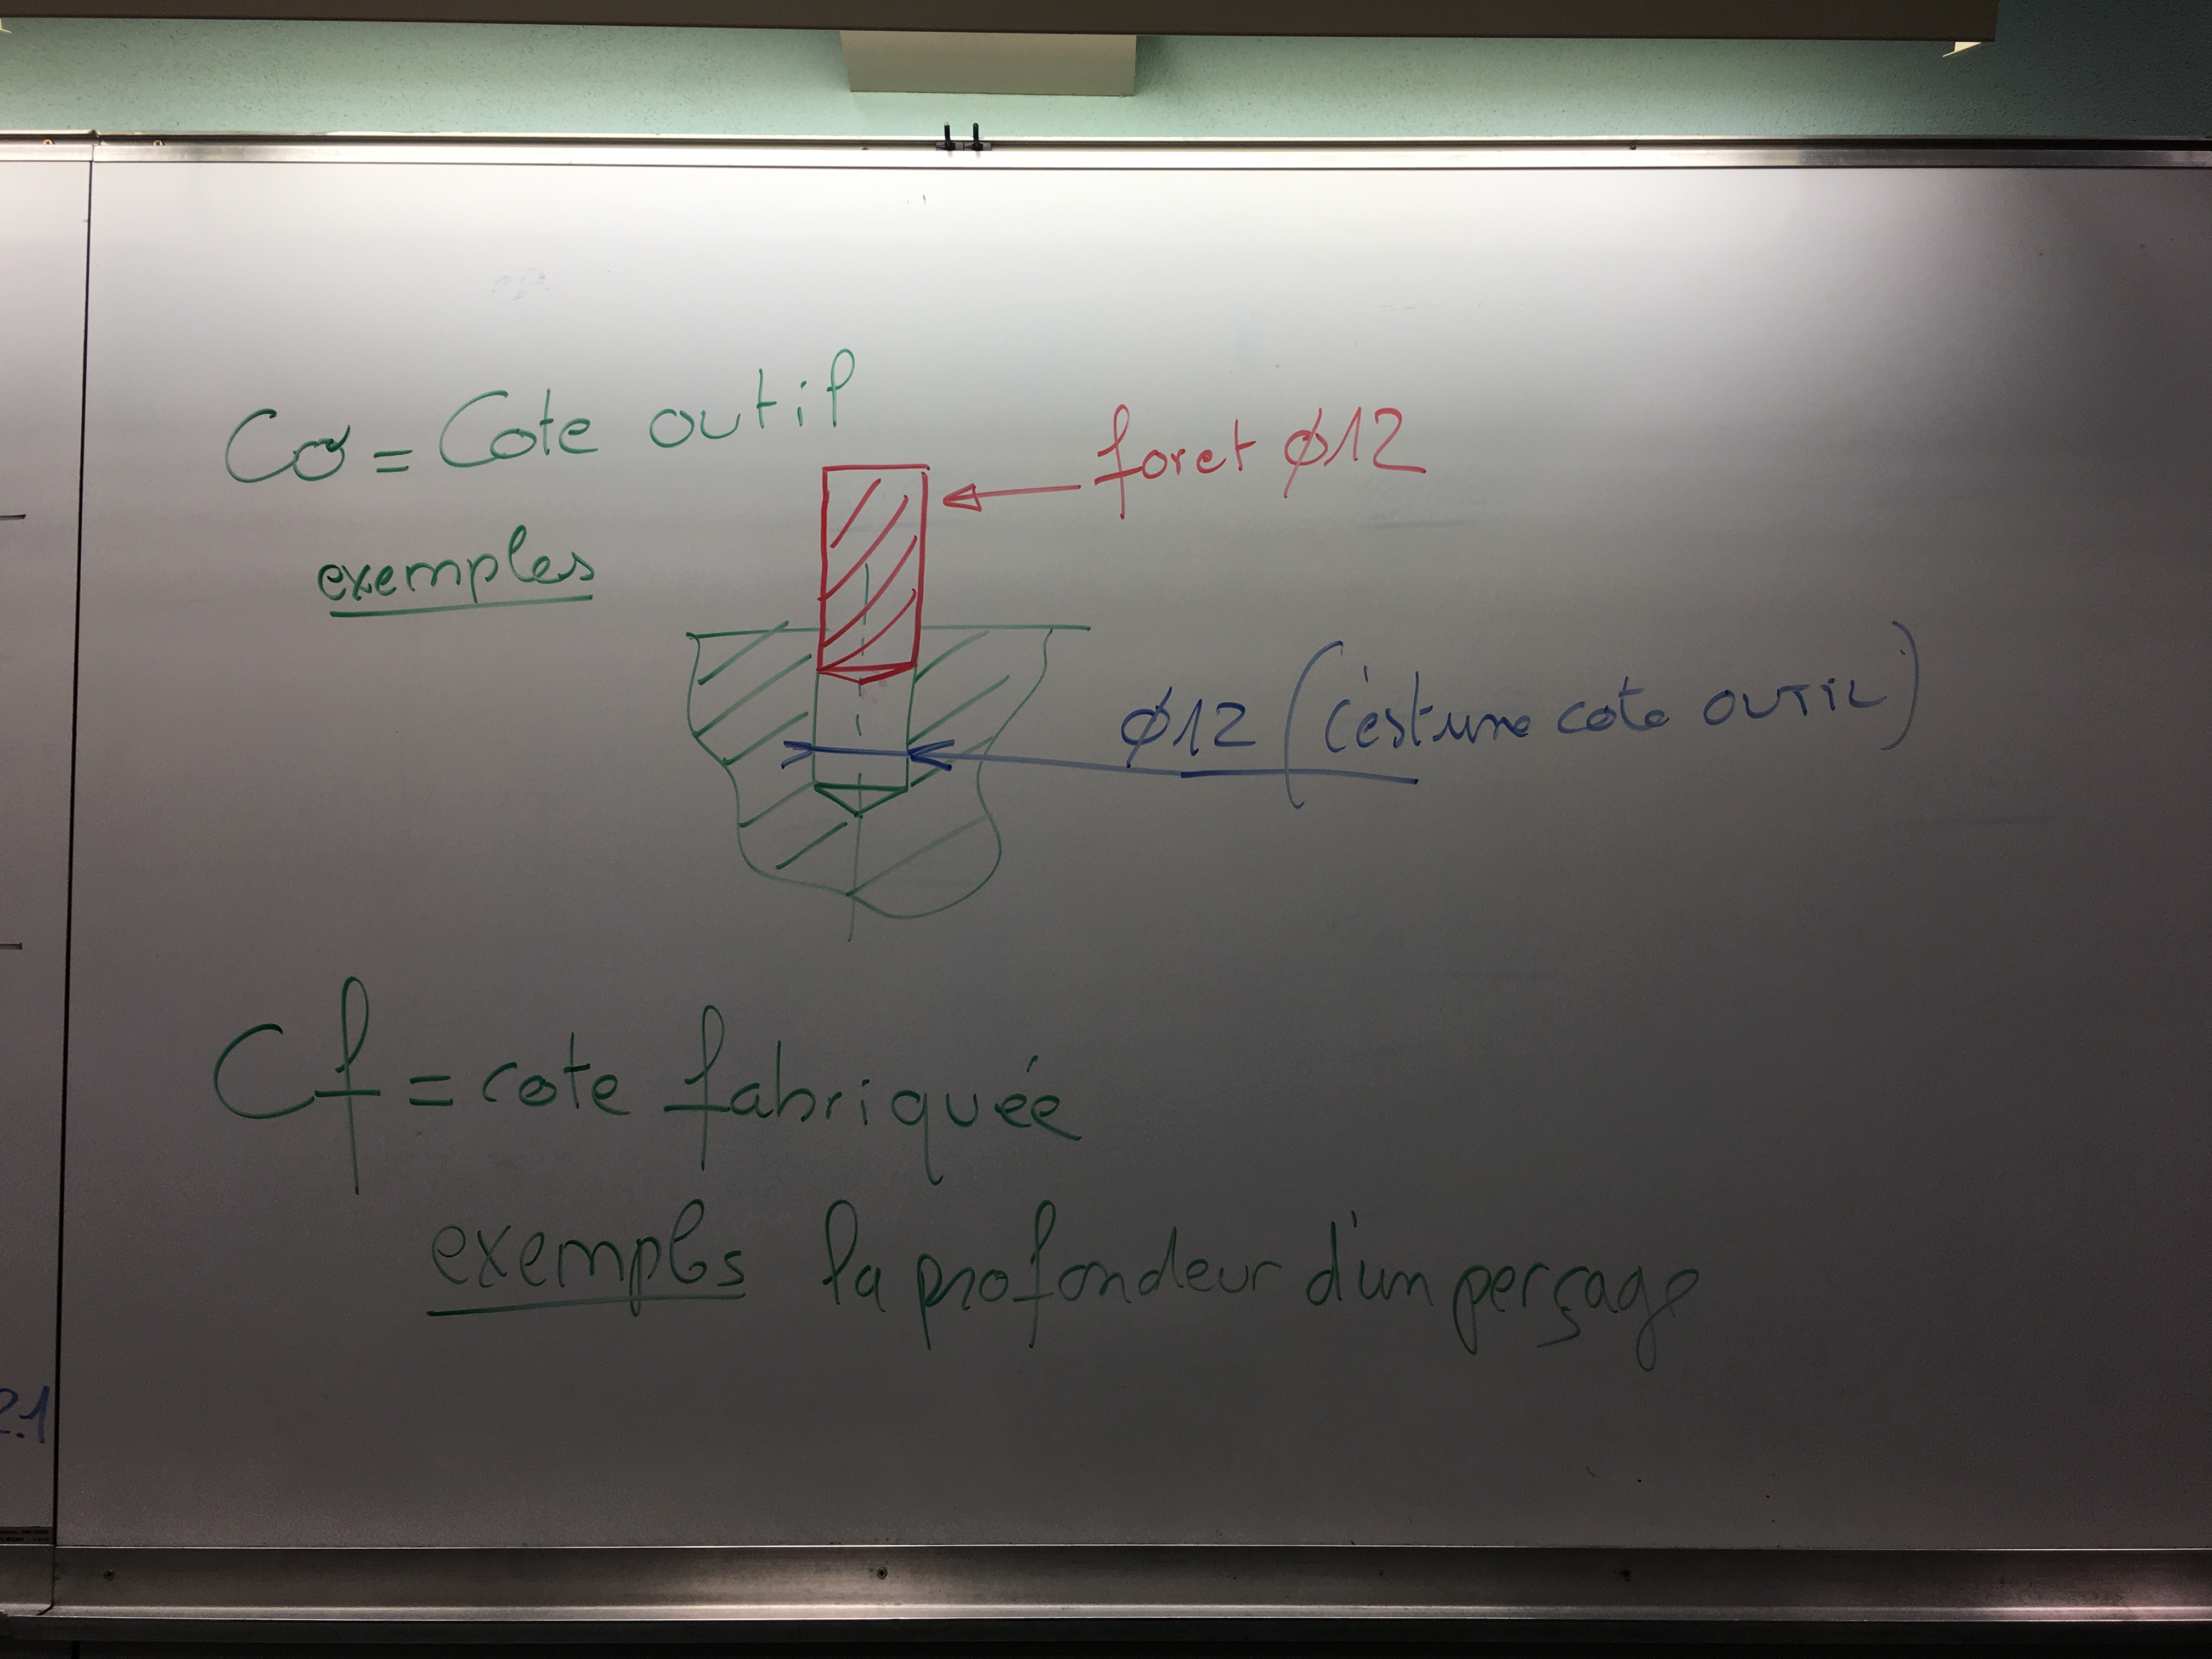 Co = Cote outil
foret ø12
exemples
ø12 (c'est une cote OUTIL)
Cf = cote fabriquée
exemples la profondeur d'un perçage
2.1